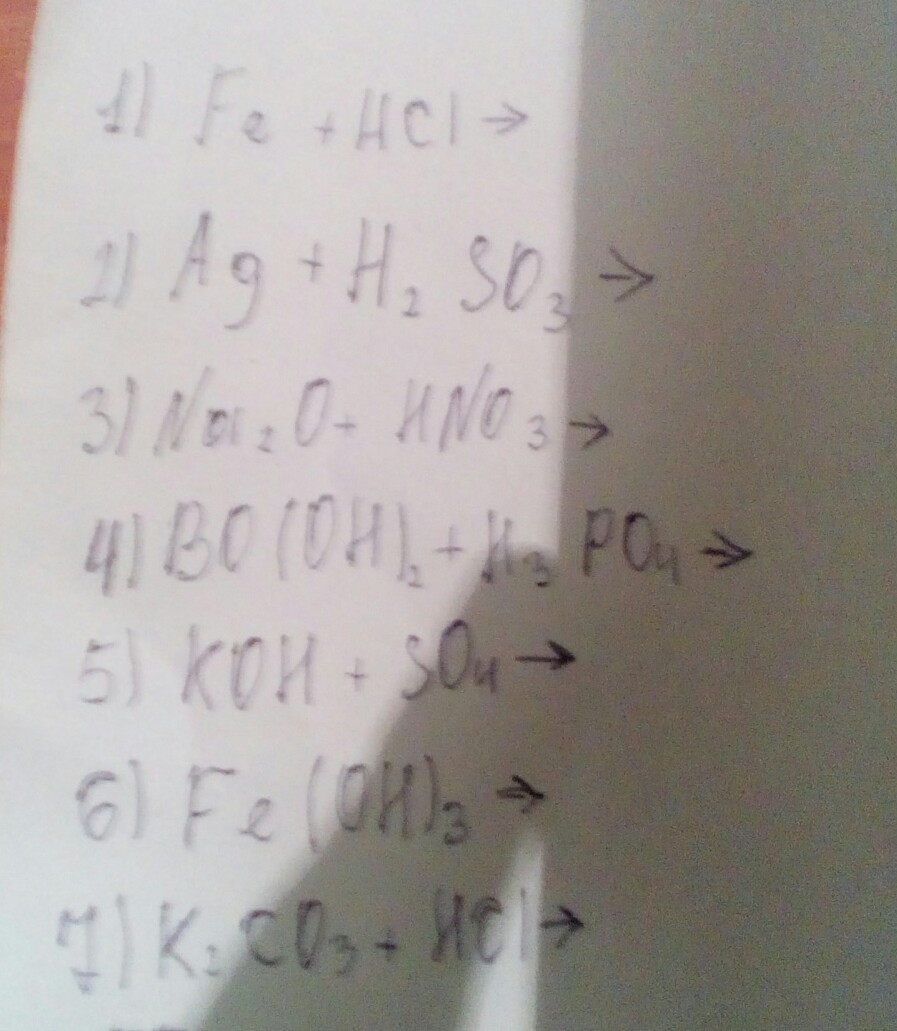 1) Fe + HCl →
2) Ag + H₂ SO₃ →
3) Na₂O + HNO₃ →
4) BO(OH)₂ + H₃ PO₄ →
5) KOH + SO₄ →
6) Fe(OH)₃ →
7) K₂CO₃ + HCl →